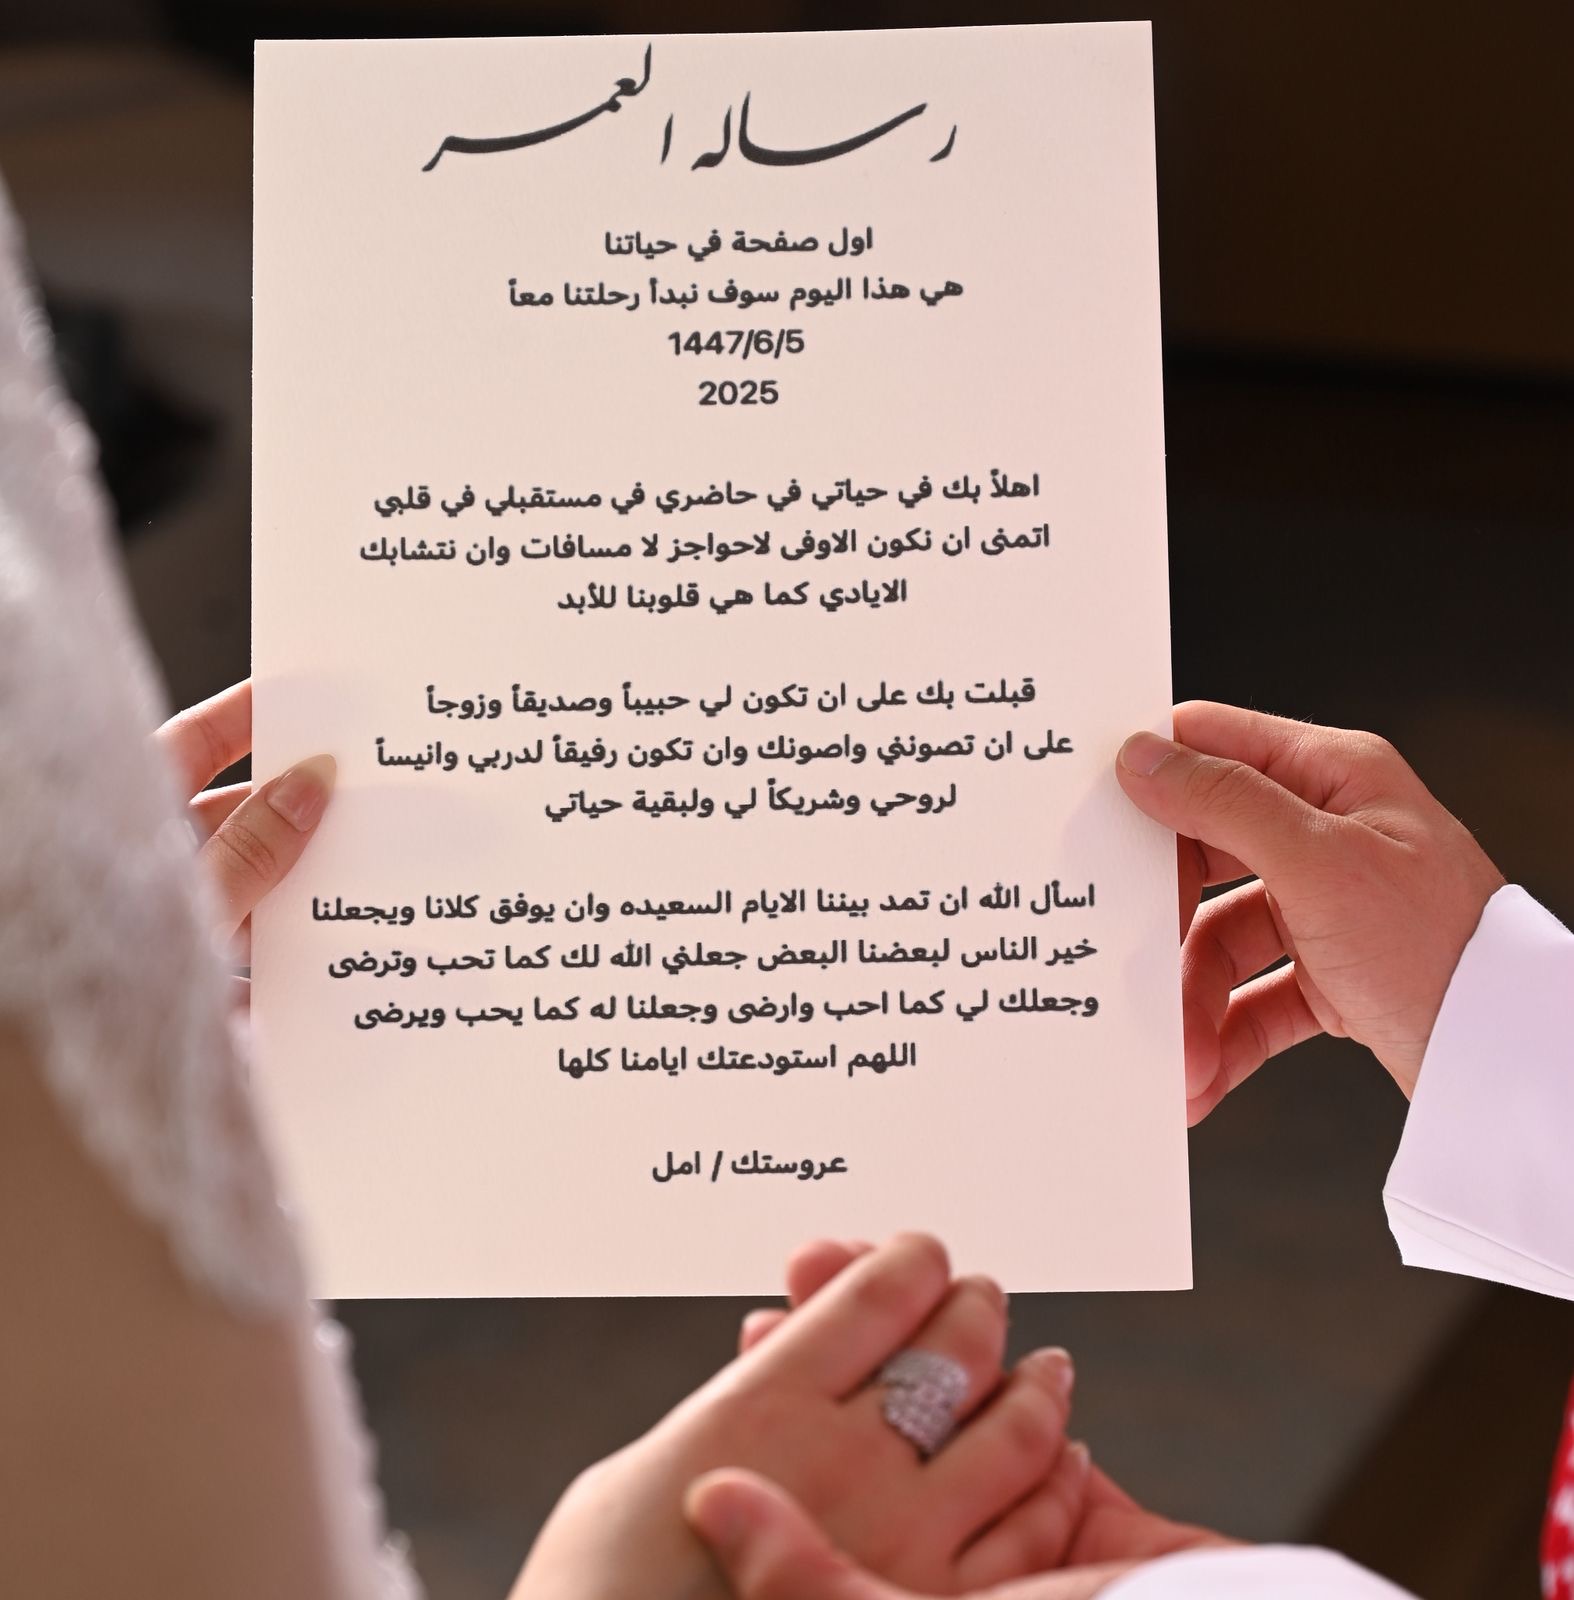 رساله العمر
اول صفحة في حياتنا
هي هذا اليوم سوف نبدأ رحلتنا معاً
1447/6/5
2025
اهلاً بك في حياتي في حاضري في مستقبلي في قلبي
اتمنى ان نكون الاوفى لاحواجز لا مسافات وان نتشابك
الايادي كما هي قلوبنا للأبد
قبلت بك على ان تكون لي حبيباً وصديقاً وزوجاً
على ان تصونني واصونك وان تكون رفيقاً لدربي وانيساً
لروحي وشريكاً لي ولبقية حياتي
اسأل الله ان تمد بيننا الايام السعيده وان يوفق كلانا ويجعلنا
خير الناس لبعضنا البعض جعلني الله لك كما تحب وترضى
وجعلك لي كما احب وارضى وجعلنا له كما يحب ويرضى
اللهم استودعتك ايامنا كلها
عروستك / امل